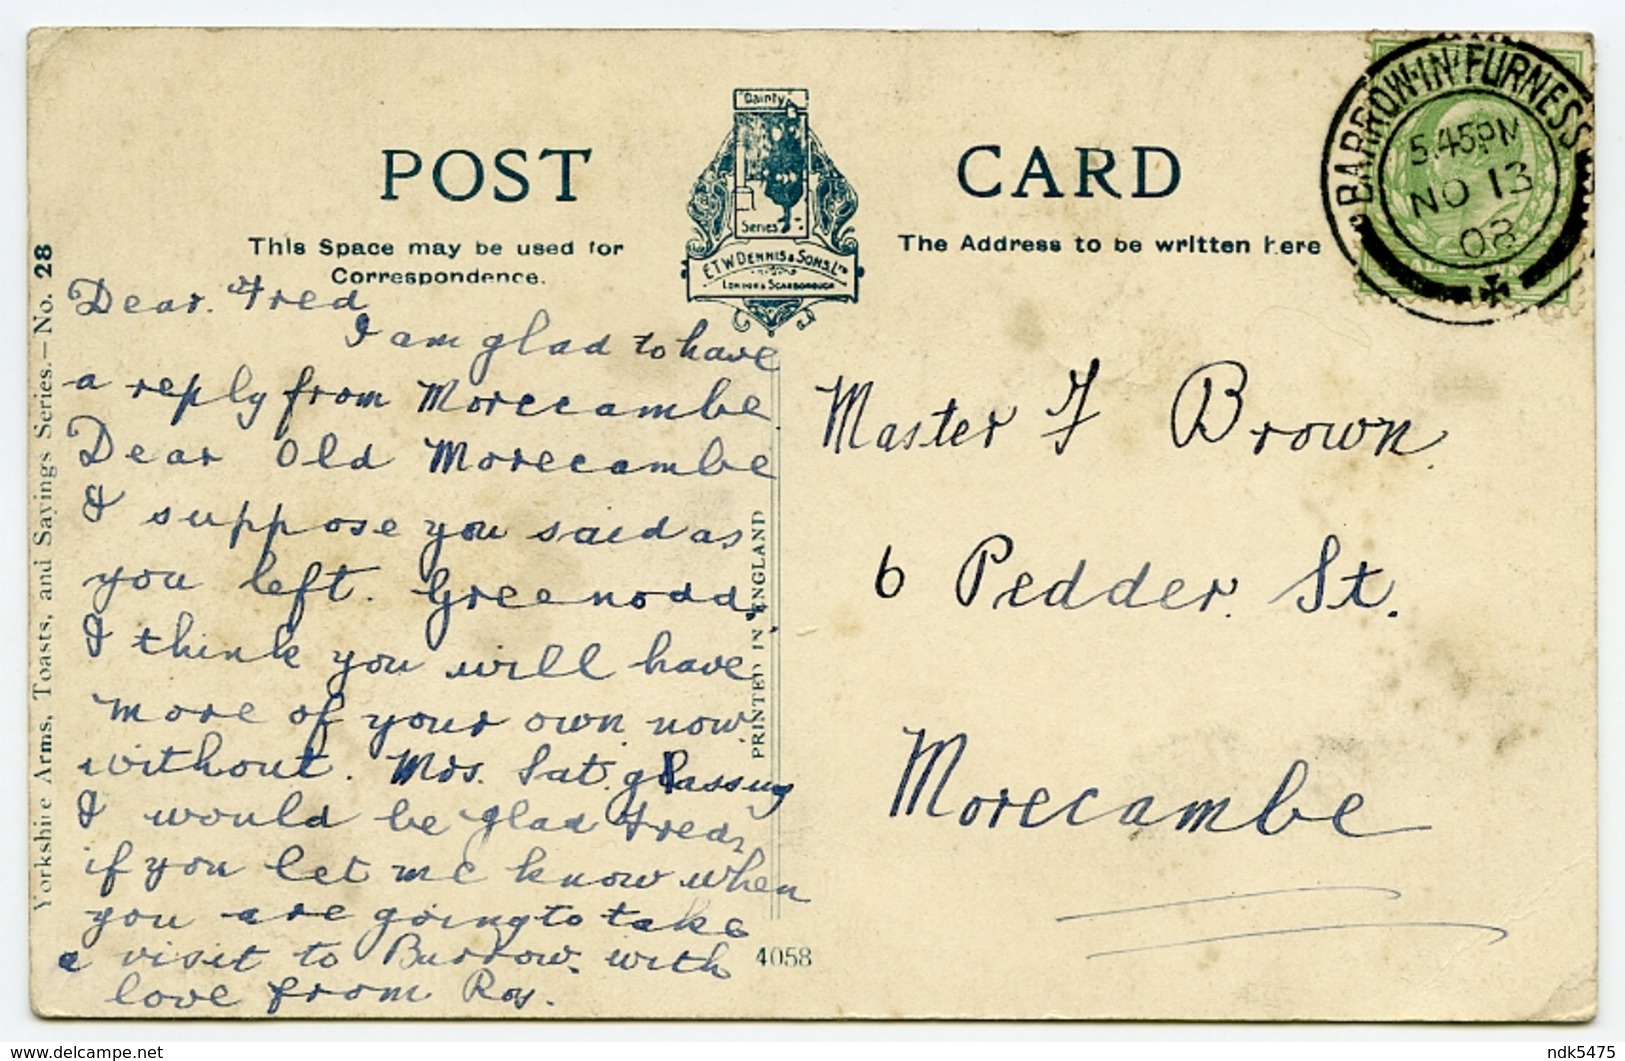 POST CARD
"Dainty"
Series
E.T.W. DENNIS & SONS, LTD
LONDON & SCARBOROUGH
This Space may be used for
Correspondence.
The Address to be written here
BARROW-IN-FURNESS
5.45PM
NO 13
08
Dear. Fred
I am glad to have
a reply from Morecambe
Dear Old Morecambe
I suppose you said as
you left. Greenodd.
I think you will have
more of your own now
without. Mrs. Sat.
I would be glad Fred
if you let me know when
you are going to take
a visit to Barrow. with
love from Roy.
Master F Brown.
6 Pedder. St.
Morecambe
Yorkshire Arms, Toasts, and Sayings Series.—No. 28
PRINTED IN ENGLAND
4058
www.delcampe.net
ndk5475